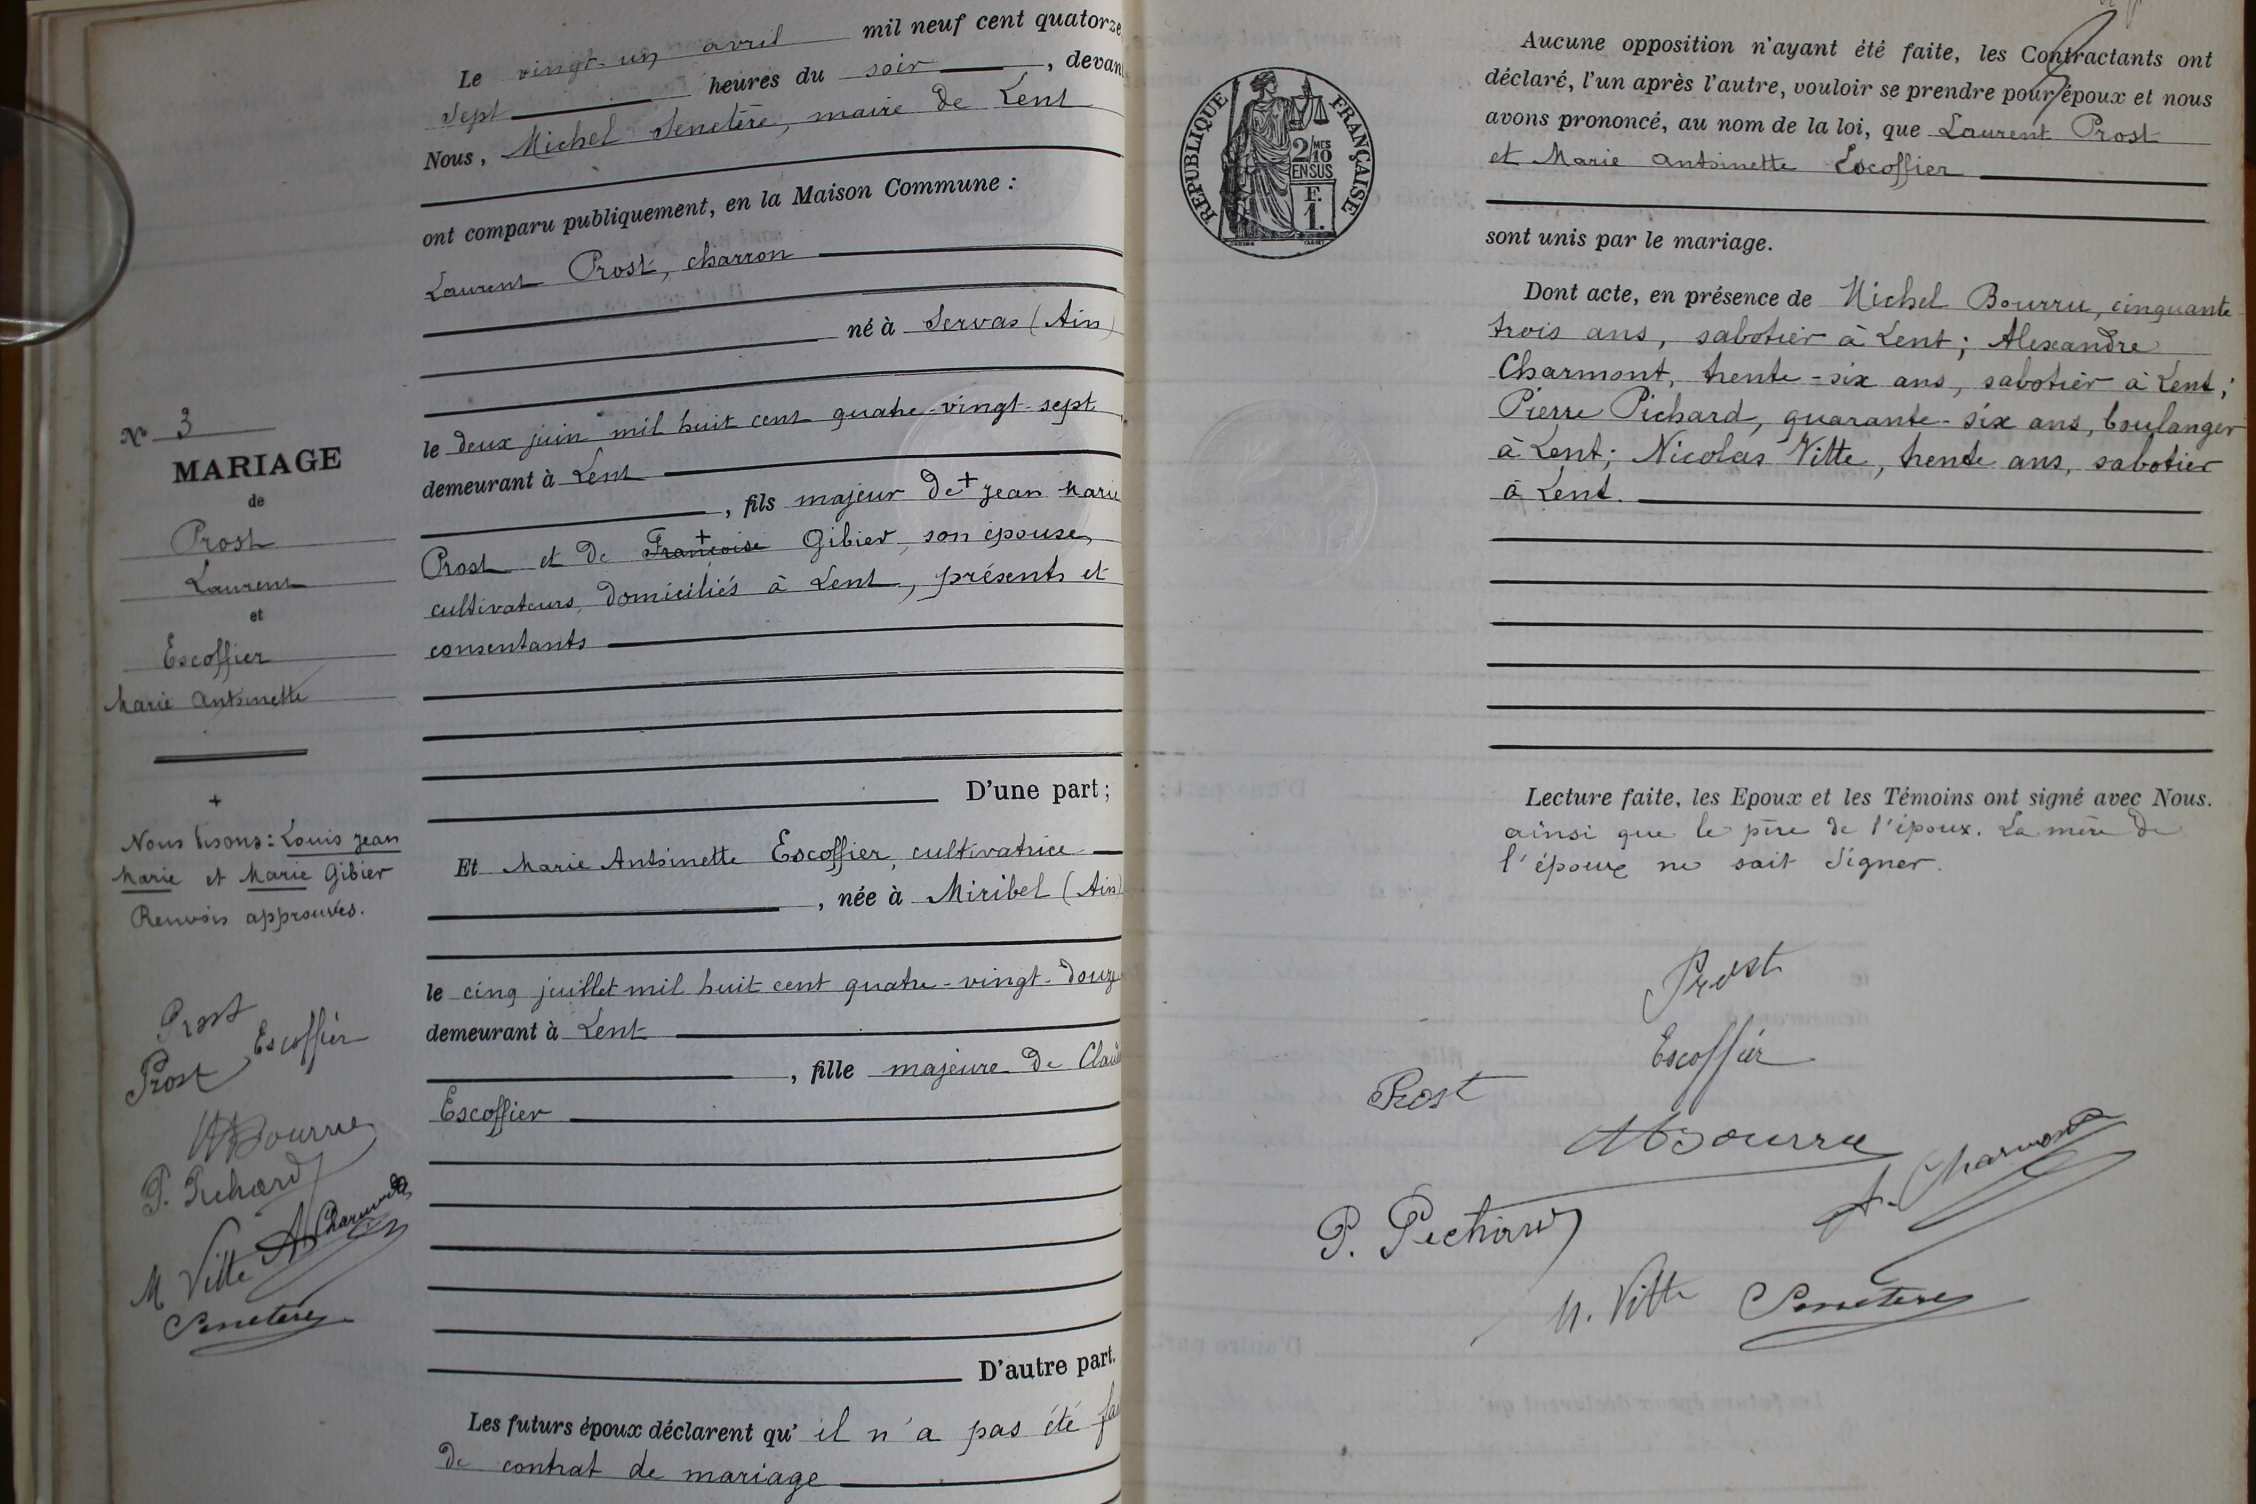 Le vingt-un avril mil neuf cent quatorze,
sept heures du soir, devant
Nous, Michel Senetère, maire de Lent
ont comparu publiquement, en la Maison Commune :
Laurent Prost, charron
né à Servas (Ain)
le deux juin mil huit cent quatre-vingt-sept
demeurant à Lent
, fils majeur de + Jean Marie
Prost et de + Françoise Gibier, son épouse,
cultivateurs, domiciliés à Lent, présents et
consentants
D'une part ;
Et Marie Antoinette Escoffier, cultivatrice
, née à Miribel (Ain)
le cinq juillet mil huit cent quatre-vingt-douze
demeurant à Lent
, fille majeure de Clau
Escoffier
D'autre part.
Les futurs époux déclarent qu' il n'a pas été fai
de contrat de mariage
No 3
MARIAGE
de
Prost
Laurent
et
Escoffier
Marie Antoinette
+
Nous lisons : Louis Jean
Marie et Marie Gibier
Renvois approuvés.
Prost
Escoffier
Prost
M Bourru
P. Pichard
A Charmont
M Vitte
Senetère
REPUBLIQUE FRANÇAISE
2/10 MES
EN SUS
F.
1.
Aucune opposition n'ayant été faite, les Contractants ont
déclaré, l'un après l'autre, vouloir se prendre pour époux et nous
avons prononcé, au nom de la loi, que Laurent Prost
et Marie Antoinette Escoffier
sont unis par le mariage.
Dont acte, en présence de Michel Bourru, cinquante
trois ans, sabotier à Lent ; Alexandre
Charmont, trente-six ans, sabotier à Lent ;
Pierre Pichard, quarante-six ans, boulanger
à Lent ; Nicolas Vitte, trente ans, sabotier
à Lent.
Lecture faite, les Epoux et les Témoins ont signé avec Nous.
ainsi que le père de l'époux. La mère de
l'époux ne sait signer.
Prost
Escoffier
Prost
M Bourru
A. Charmont
P. Pichard
N. Vitte
Senetère